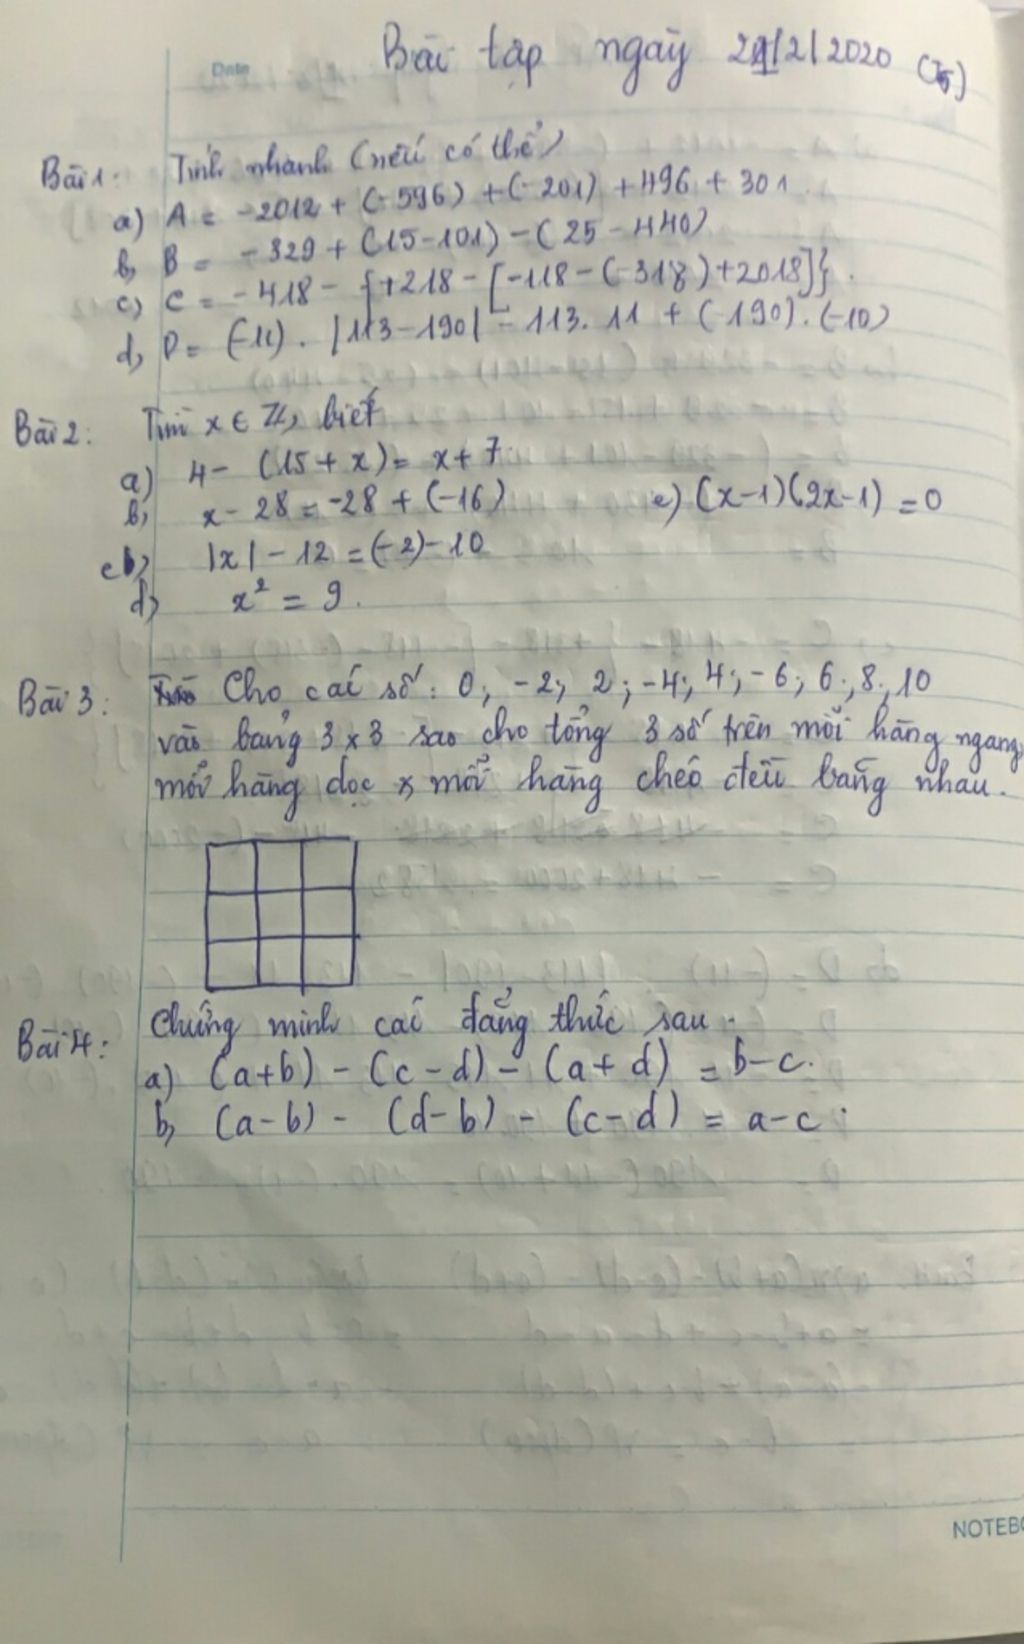 Date
Bài tập ngày 29/2/2020
Bài 1: Tính nhanh (nếu có thể)
a) A = -2012 + (-596) + (-201) + 496 + 301
b, B = -329 + (15-101) - (25-440)
c) C = -418 - {+218 - [-118 - (-318) + 2018]}.
d, D = (-11) . |113-190| - 113. 11 + (-190). (-10)
Bài 2: Tìm x ∈ Z, biết
a) 4 - (15 + x) = x + 7.
b, x - 28 = -28 + (-16) e) (x-1)(2x-1) = 0
c, |x| - 12 = (-2) - 10
d, x² = 9.
Bài 3: Cho các số: 0; -2; 2; -4; 4; -6; 6; 8; 10
vào bảng 3 x 3 sao cho tổng 3 số trên mỗi hàng ngang,
mỗi hàng dọc mỗi hàng chéo đều bằng nhau.
Bài 4: Chứng minh các đẳng thức sau.
a) (a+b) - (c-d) - (a+d) = b-c.
b, (a-b) - (d-b) - (c-d) = a-c.